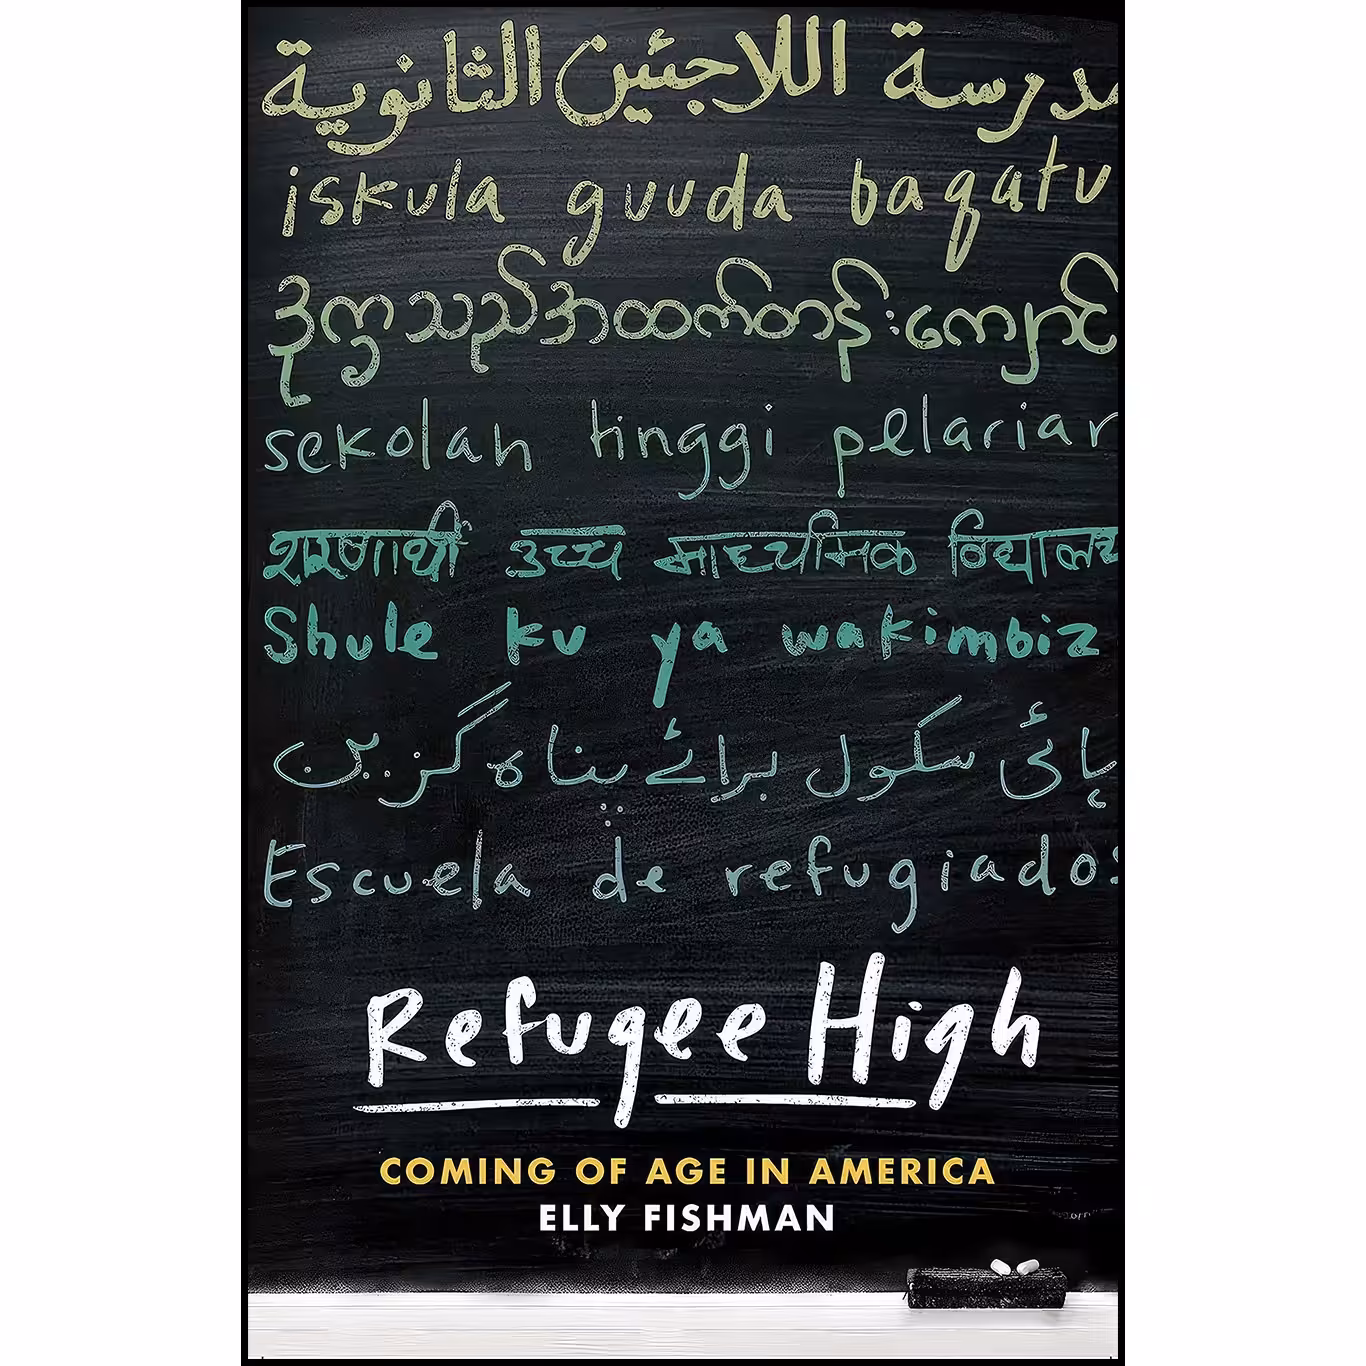 مدرسة اللاجئين الثانوية
iskula guuda baqatu
ဒုက္ခသည်အထက်တန်းကျောင်
sekolah tinggi pelarian
शरणार्थी उच्च माध्यमिक विद्यालय
Shule ku ya wakimbiz
ہائی سکول برائے پناہ گزین
Escuela de refugiados
Refugee High
COMING OF AGE IN AMERICA
ELLY FISHMAN